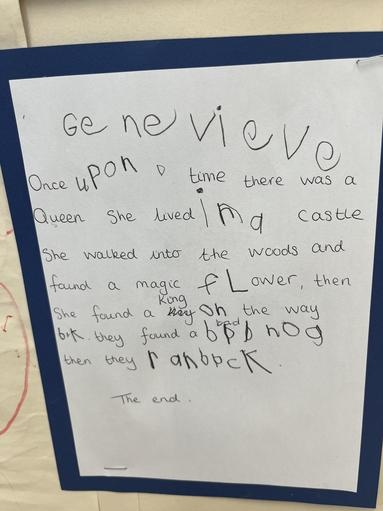 Genevieve
Once upon a time there was a
Queen she lived in a castle
She walked into the woods and
found a magic fLower, then
King
She found a on the way
bad
bak. they found a bpd nog
then they ranback.
The end.